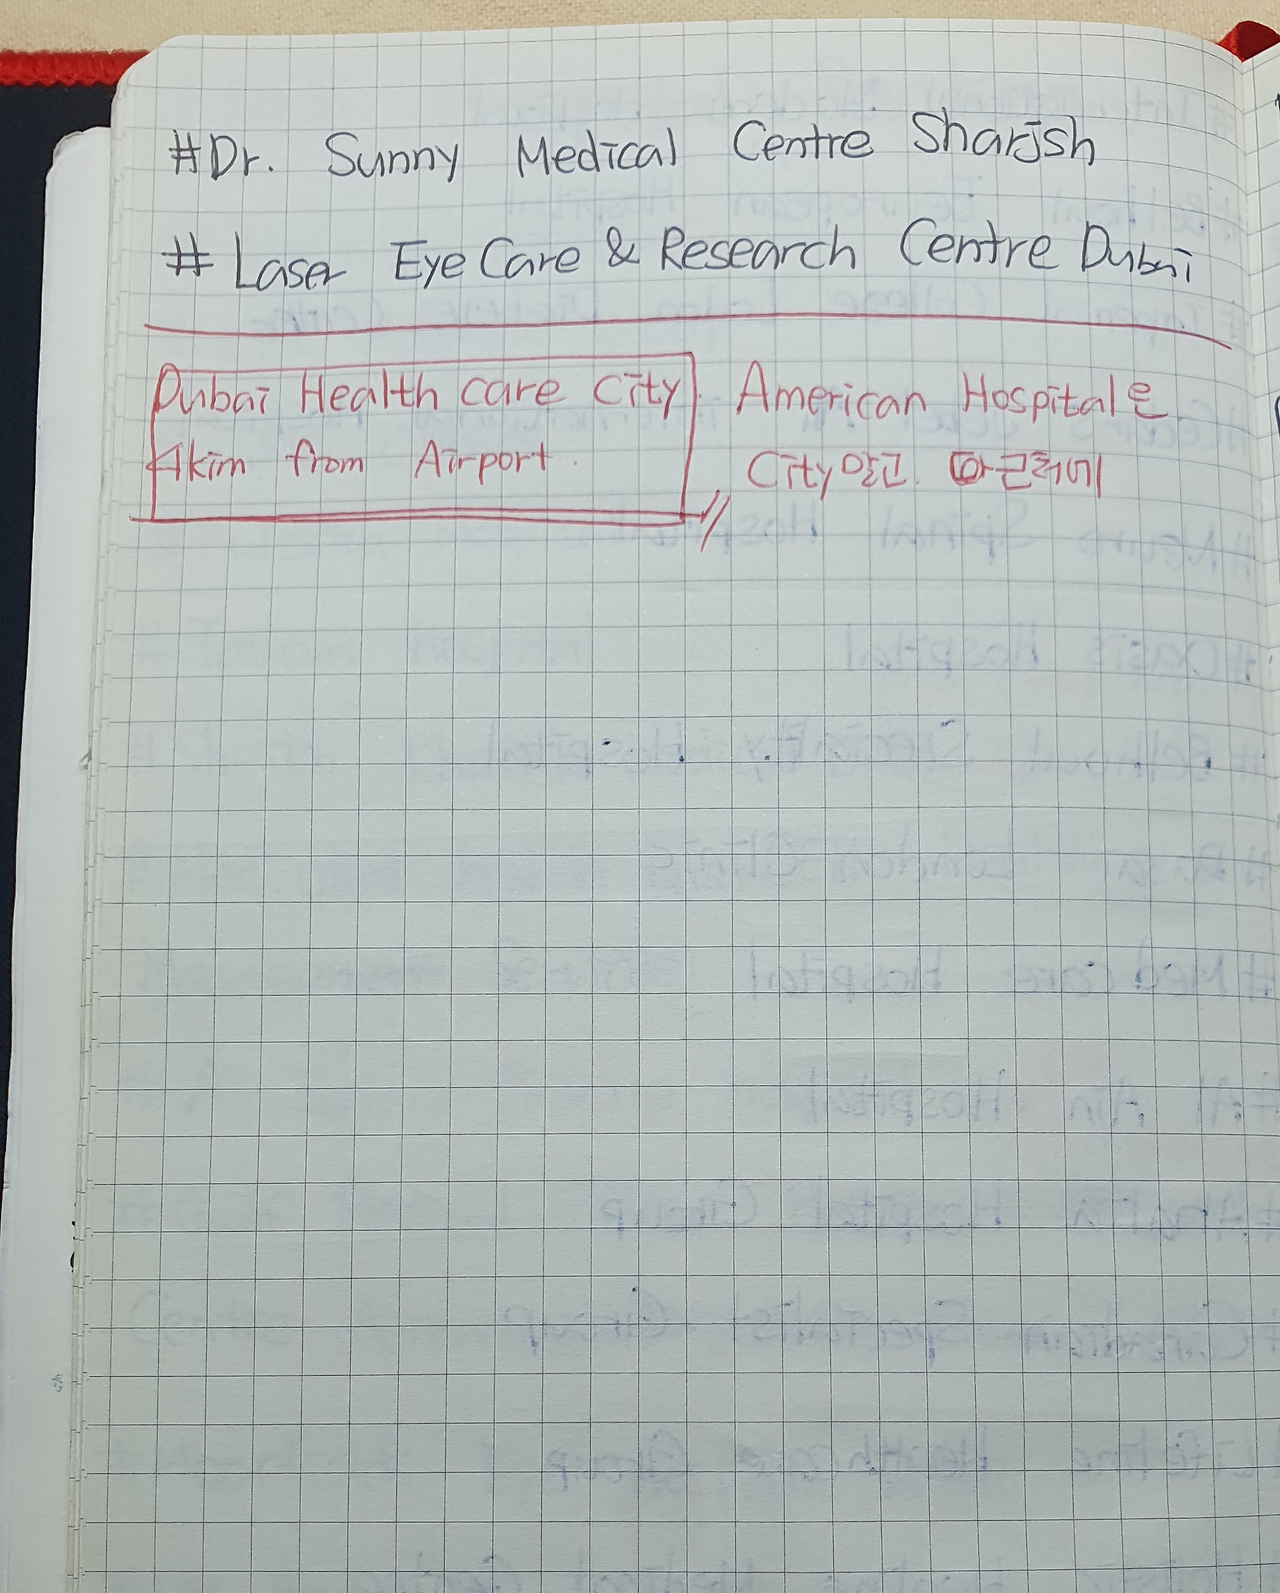 #Dr. Sunny Medical Centre Sharjsh
# Laser Eye Care & Research Centre Dubai
Dubai Health care City
4km from Airport.
American Hospital은
City 말고. 근처에